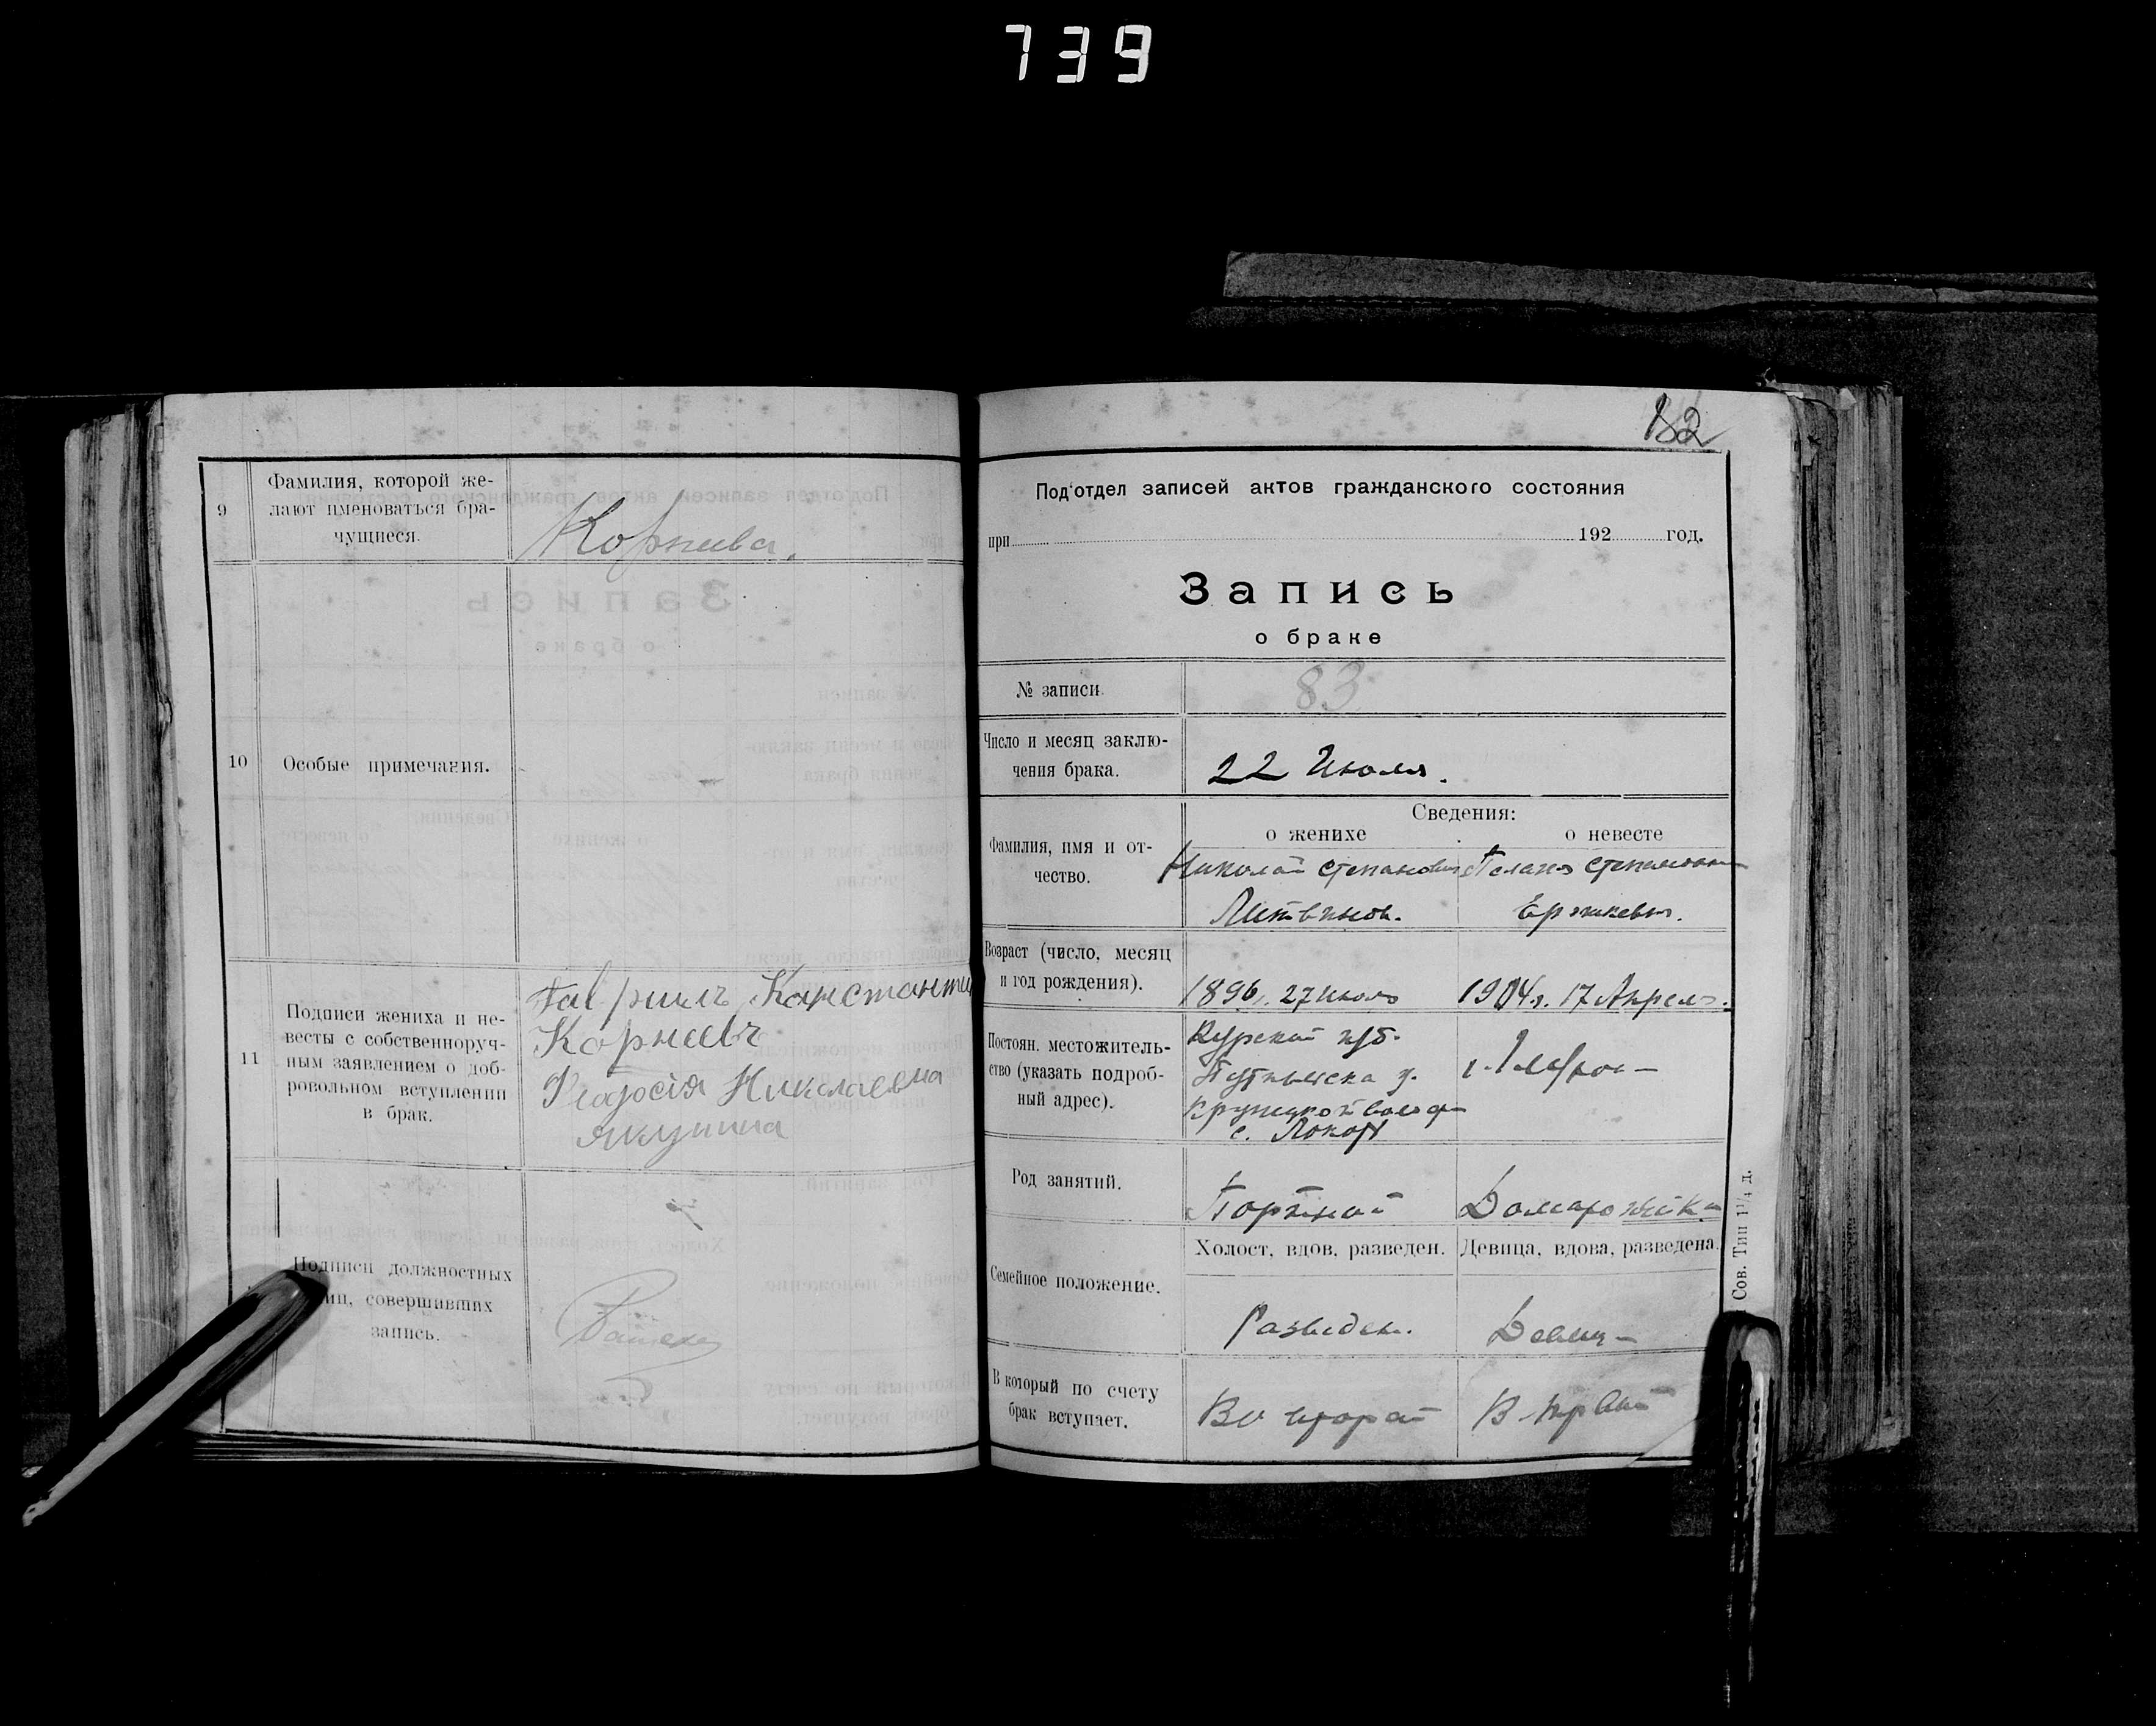 739
9
Фамилия, которой же-
лают именоваться бра-
чущиеся.
Корнева.
10
Особые примечания.
11
Подписи жениха и не-
весты с собственноруч-
ным заявлением о доб-
ровольном вступлении
в брак.
Гаврiилъ Константи
Корнеевъ
Феодосiя Николаевна
Якунина
Подписи должностных
лиц, совершивших
запись.
182
Под'отдел записей актов гражданского состояния
при 192 год.
Запись
о браке
№ записи.
83
Число и месяц заклю-
чения брака.
22 Июля.
Сведения:
о женихе о невесте
Фамилия, имя и от-
чество.
Николай Степанович
Литвинов.
Степановна
Возраст (число, месяц
и год рождения).
1896г. 27 Июля
1904г. 17 Апреля.
Постоян. местожитель-
ство (указать подроб-
ный адрес).
Курской губ.
у.
с.
Род занятий.
Портной
Холост, вдов, разведен. Девица, вдова, разведена.
Семейное положение.
Разведен.
Девица
В который по счету
брак вступает.
Во второй
В первый
Сов. Тип 1¼ д.